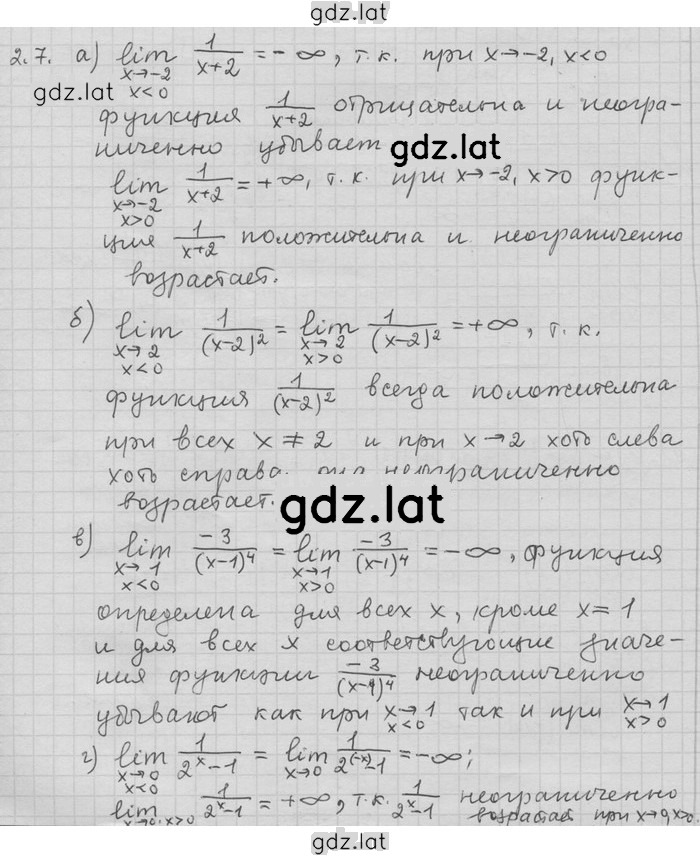 gdz.lat
2.7. а) lim 1/(x+2) = -∞, т.к. при x→-2, x<0
x→-2
x<0
gdz.lat
функция 1/(x+2) отрицательна и неогра-
ниченно убывает
gdz.lat
lim 1/(x+2) = +∞, т.к. при x→-2, x>0 функ-
x→-2
x>0
ция 1/(x+2) положительна и неограниченно
возрастает.
б) lim 1/(x-2)² = lim 1/(x-2)² = +∞, т.к.
x→2 x→2
x<0 x>0
функция 1/(x-2)² всегда положительна
при всех x ≠ 2 и при x→2 хоть слева
хоть справа, она неограниченно
возрастает.
gdz.lat
в) lim -3/(x-1)⁴ = lim -3/(x-1)⁴ = -∞, функция
x→1 x→1
x<0 x>0
определена для всех x, кроме x=1
и для всех x соответствующие значе-
ния функции -3/(x-1)⁴ неограниченно
убывают как при x→1 так и при x→1
x<0 x>0
г) lim 1/(2ˣ-1) = lim 1/(2⁽⁻ˣ⁾-1) = -∞;
x→0 x→0
x<0
lim 1/(2ˣ-1) = +∞, т.к. 1/(2ˣ-1) неограниченно
x→0, x>0 возрастает при x→0, x>0.
gdz.lat